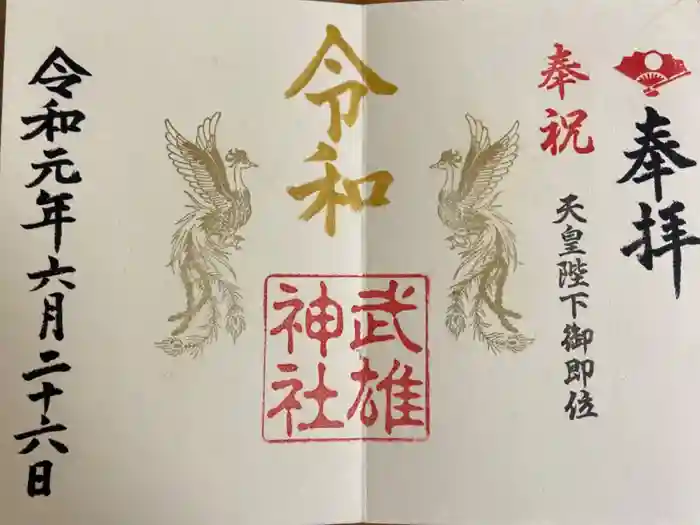 奉拝
奉祝
天皇陛下御即位
令和
武雄
神社
令和元年六月二十六日